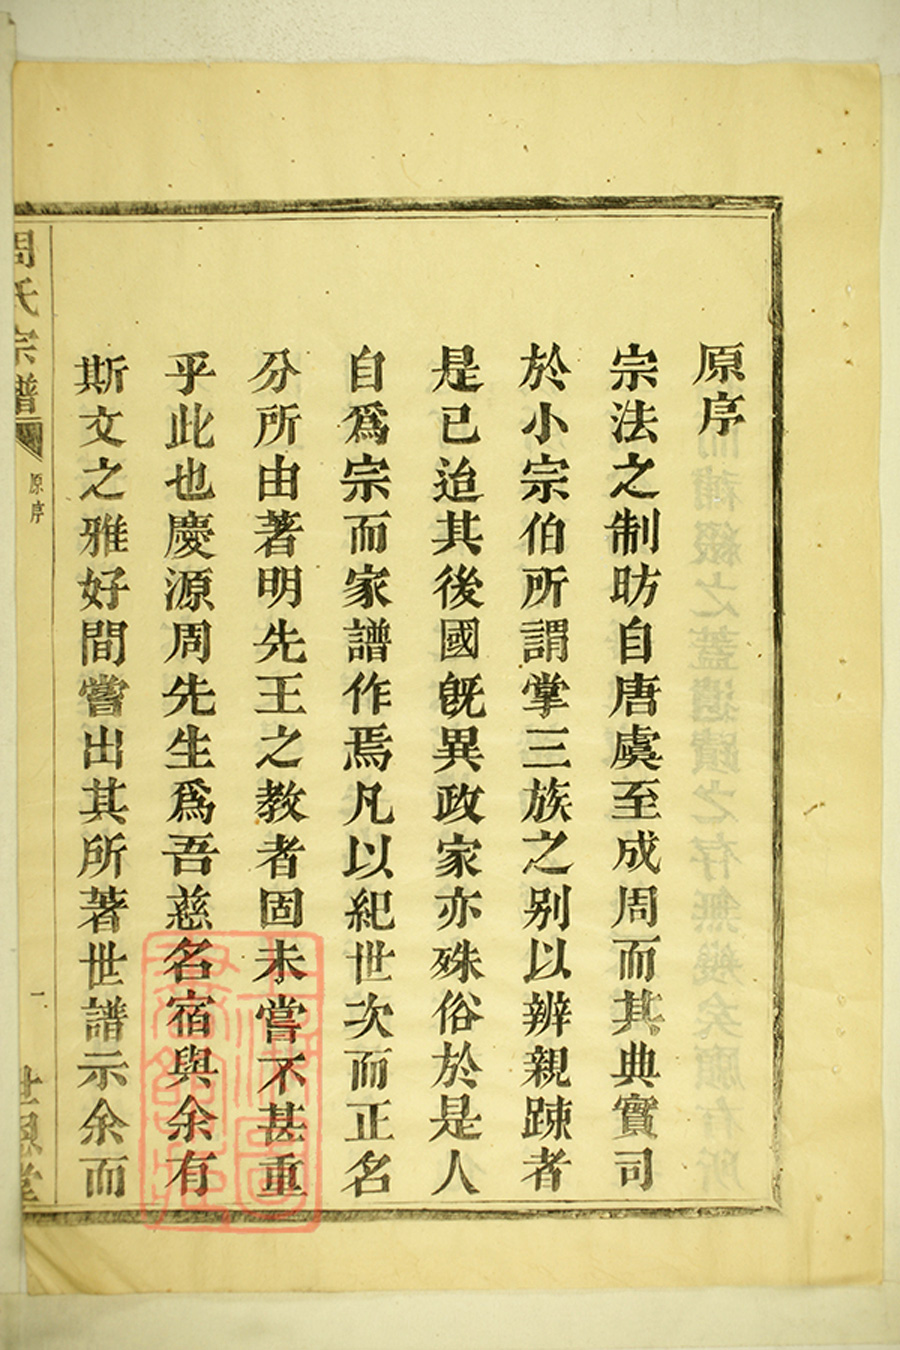 原序
宗法之制昉自唐虞至成周而其典實司
於小宗伯所謂掌三族之别以辨親踈者
是已迨其後國旣異政家亦殊俗於是人
自爲宗而家譜作焉凡以紀世次而正名
分所由著明先王之教者固未嘗不甚重
乎此也慶源周先生爲吾慈名宿與余有
斯文之雅好間嘗出其所著世譜示余而
周氏宗譜
原序
一
世恩堂